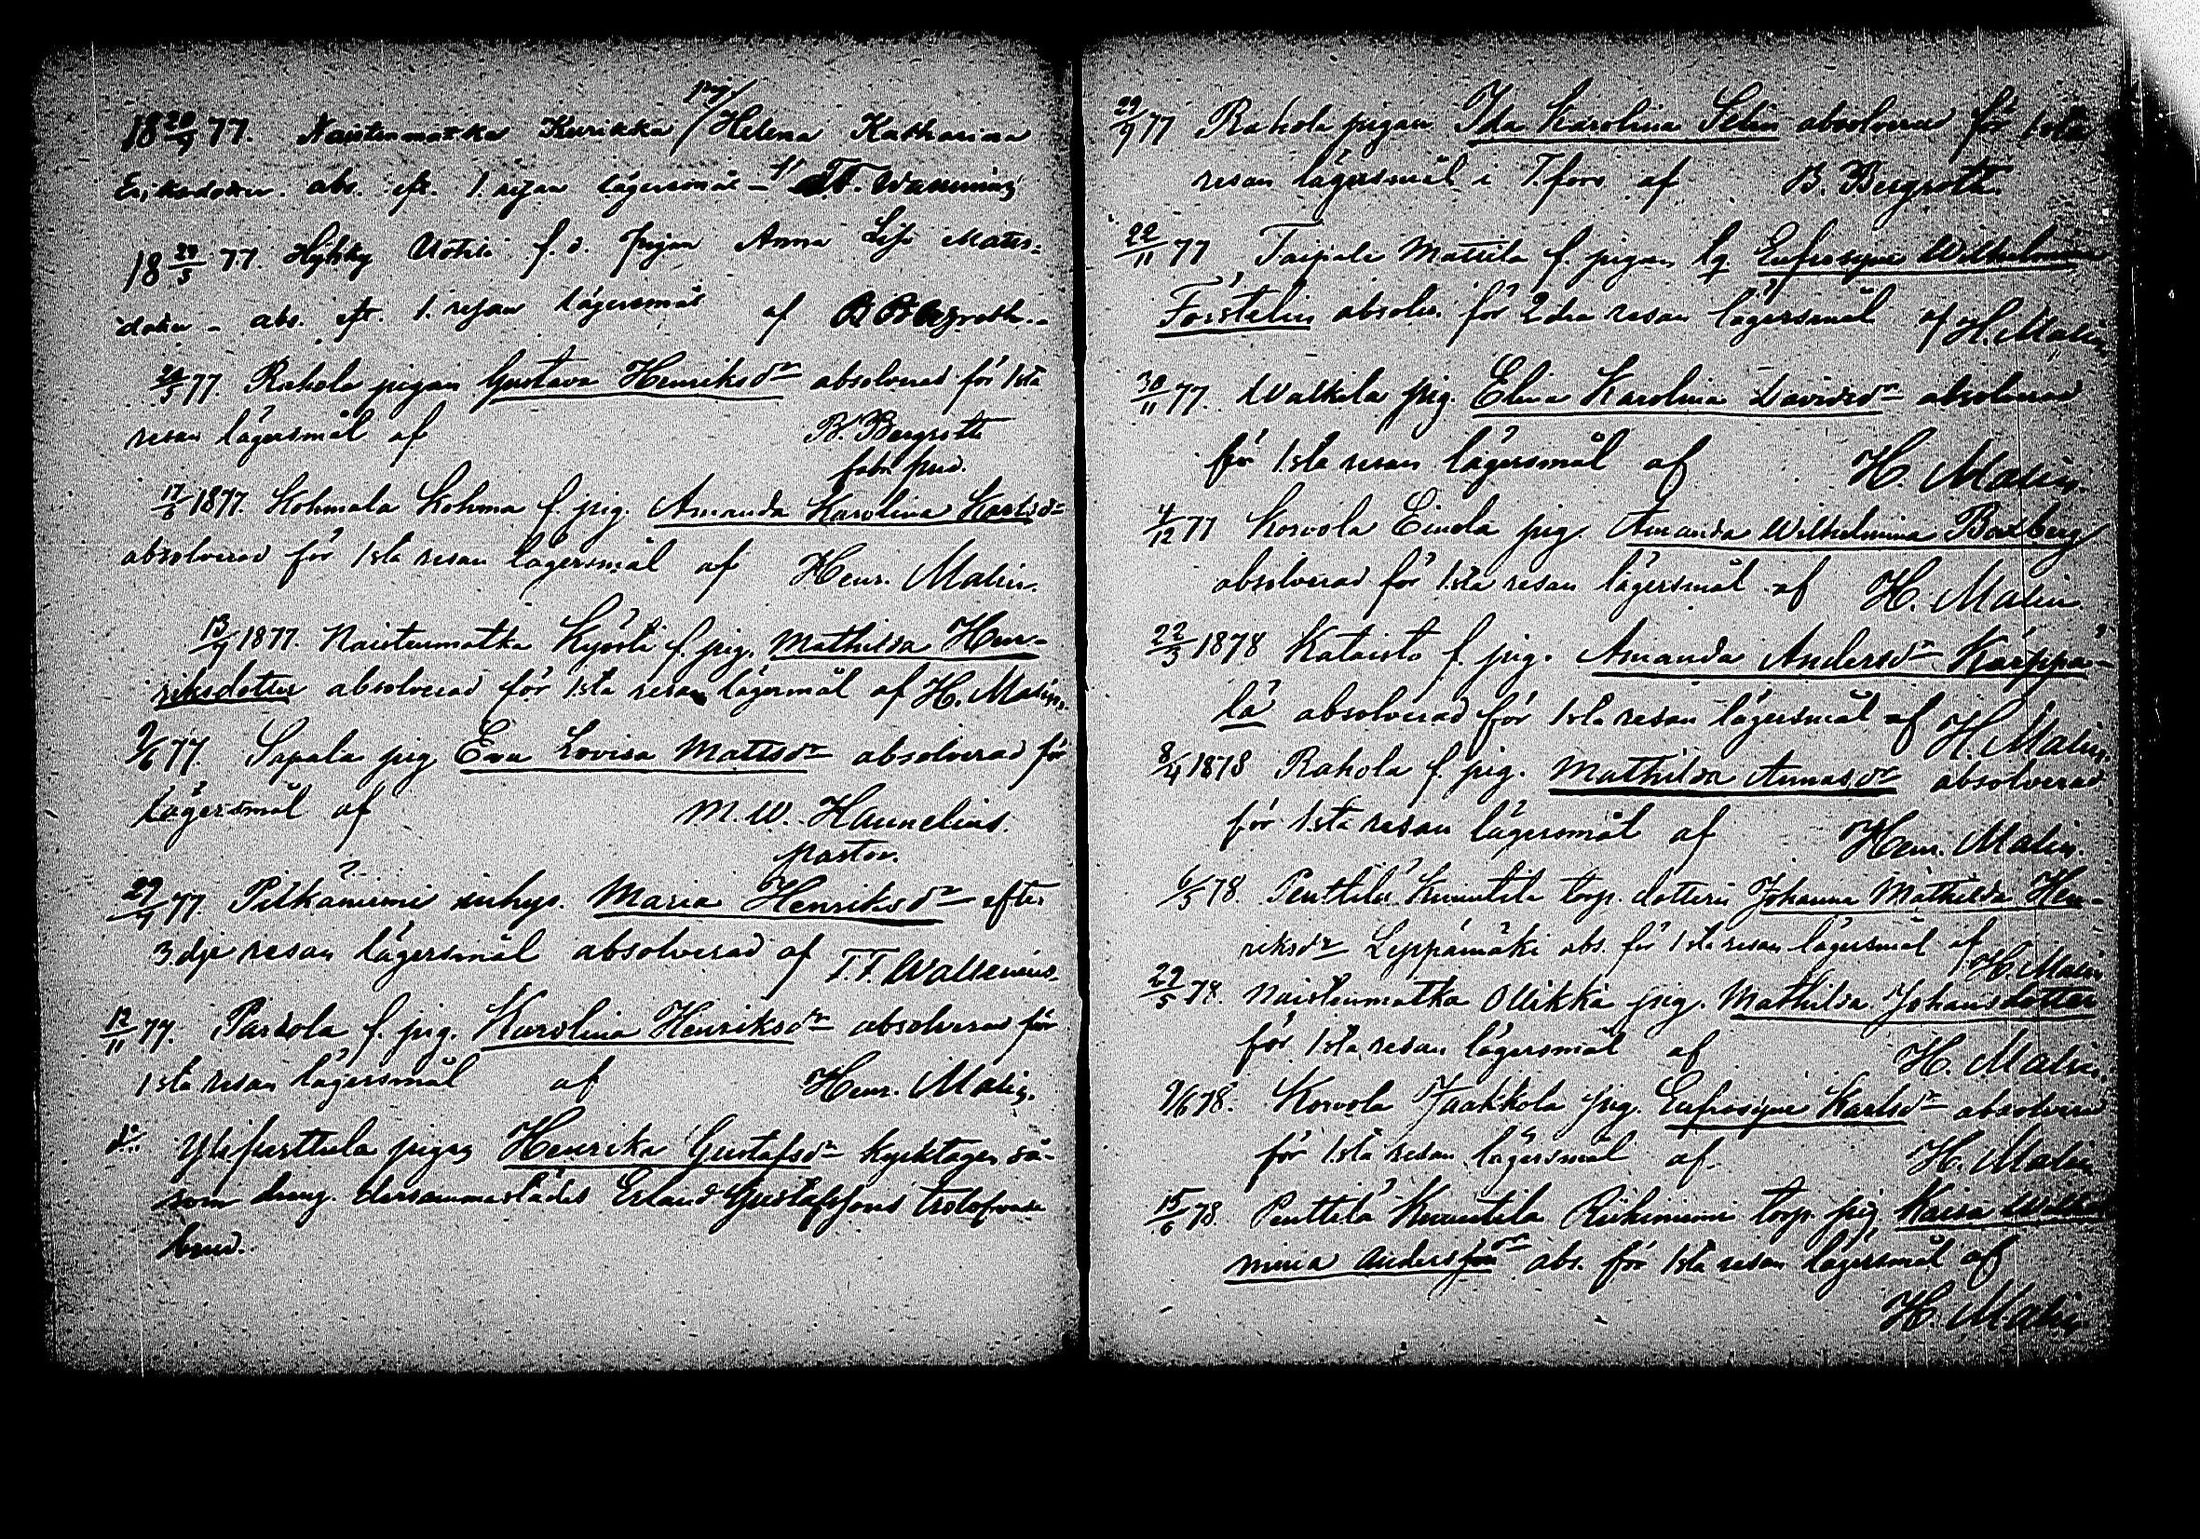 pig.
18 20/4 77. Naistenmatka Kurikka / Helena Katharina
Eriksdotter. abs. eft. 1. resan lägersmål – af T.T. Wallenius
18 24/5 77. Uotila f. d. pigan Anna Lisa Matts-
doter – abs. eft. 1. resan lägersmål af B. Bergroth.
24/5 77. Rahola pigan Gustava Henriksdr absolverad för 1sta
resan lägersmål af B. Bergroth
17/6 1877. Kohmala Kohma f. pig. Amanda Karolina Karlsdr
absolverad för 1sta resan lägersmål af Henr. Malin.
13/7 1877. Naistenmatka Kyösti f. pig. Mathilda Hen-
riksdotter absolverad för 1sta resan lägersmål af H. Malin.
9/6 77. Sapala pig Eva Lovisa Mattsdr absolverad för
lägersmål af M. W. Hannelius.
pastor.
29/4 77. Pitkäniemi inhys. Maria Henriksdr efter
3.dje resan lägersmål absolverad af T.T. Wallenius.
12/11 77. Parkola f. pig. Karolina Henriksdr absolverad för
1sta resan lägersmål af Henr. Malin.
do. Ylipirttula pigan Henrika Gustafsdr kyrktagen så-
som dräng. dersammastädes Erland Gustafssons trolofvade
brud.
29/9 77 Rahola pigan Ida Karolina Selin absolverad för 1sta
resan lägersmål i T.fors af B. Bergroth.
22/11 77 Taipale Mattila f. pigan Eufrosyne Wilhelmina
Förstelin absolv. för 2dra resan lägersmål af H. Malin
30/11 77. Walkila pig. Elina Karolina Davidsdr absolverad
för 1sta resan lägersmål af H. Malin.
4/12 77 Korvola Einola pig. Amanda Wilhelmina Boxberg
absolverad för 1sta resan lägersmål af H. Malin
22/3 1878 Kataisto f. pig. Amanda Andersdr Kärppä-
lä absolverad för 1sta resan lägersmål af H. Malin.
8/4 1878 Rahola f. pig. Mathilda Annasdr absolverad
för 1sta resan lägersmål af Henr. Malin.
6/5 78. Penttilä Knuutila torp. dottern Johanna Mathilda Hen-
riksdr Leppämäki abs. för 1sta resan lägersmål af H. Malin
29/5 78. Naistenmatka Ollikka pig. Mathilda Johansdotter
för 1sta resan lägersmål af H. Malin.
9/6 78. Korvola Jaakkola pig. Eufrosyne Karlsdr absolverad
för 1sta resan lägersmål af H. Malin
15/6 78. Penttilä Knuutila Riihiniemi torp. pig. Kaisa Wilhel
mina Andersson dr abs. för 1sta resan lägersmål af
H. Malin